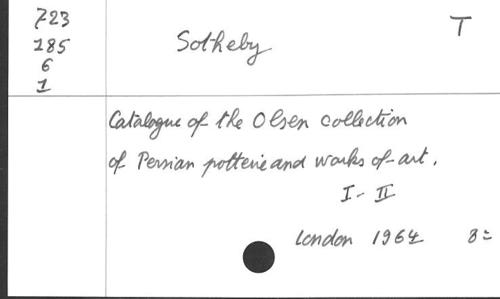 723
185
6
1
Sotheby
T
Catalogue of the Olsen collection
of Persian potterie and works of art.
I - II
London 1964 8º